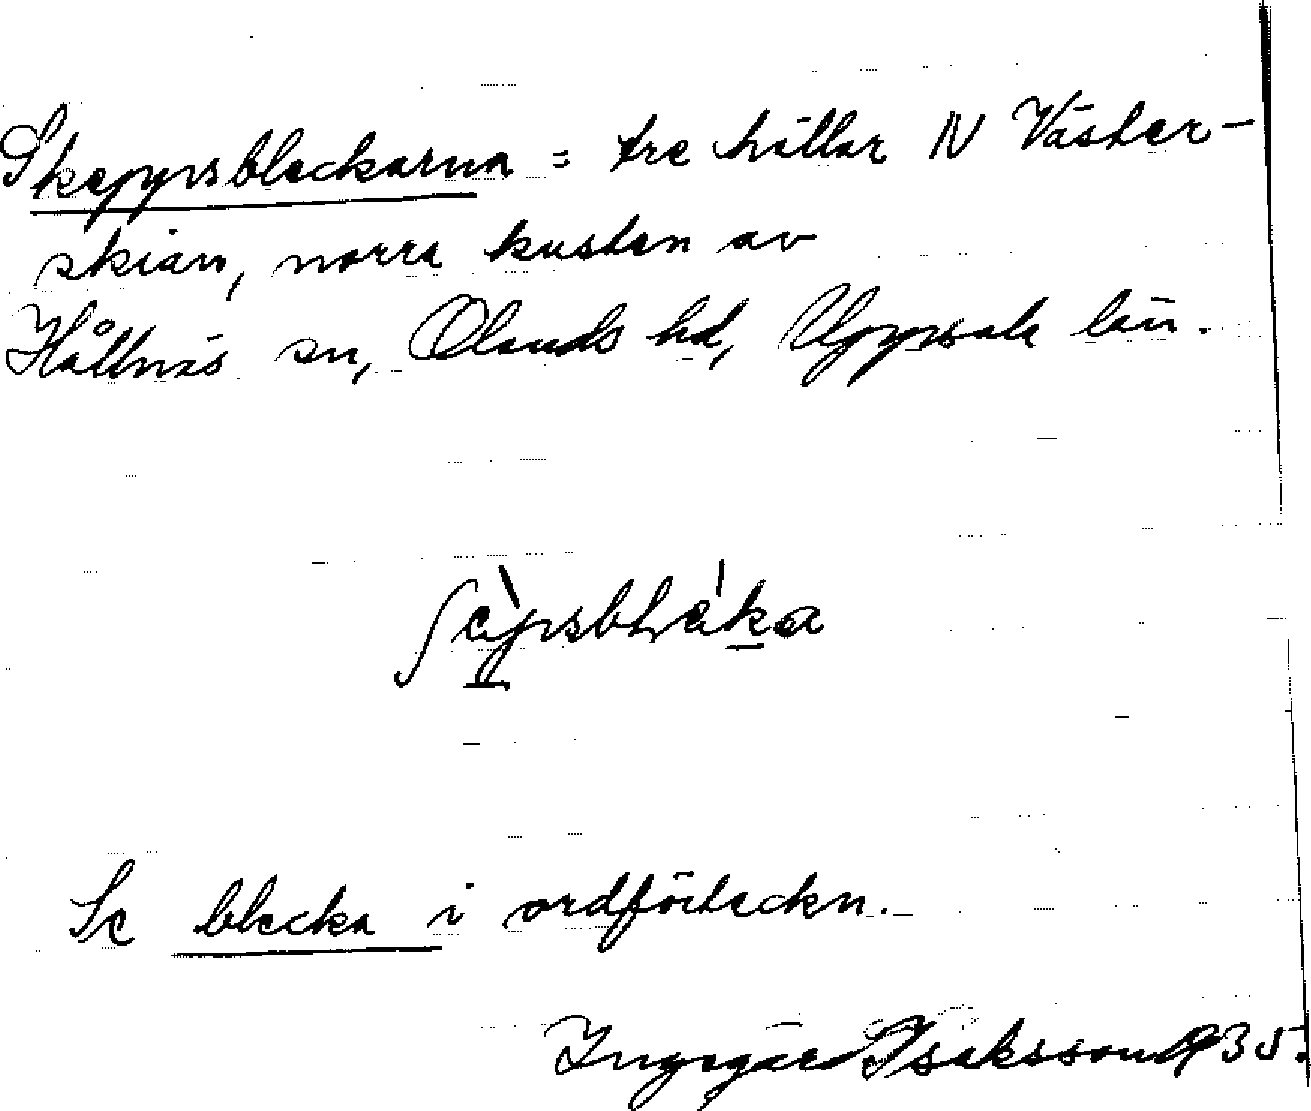 Skeppsbleckorna = tre hällar N Väster-
skian, norra kusten av
Hållnäs sn, Olands hd, Uppsala län.
Se blecka i ordförteckn.
Ingegärd Isaksson 1935.